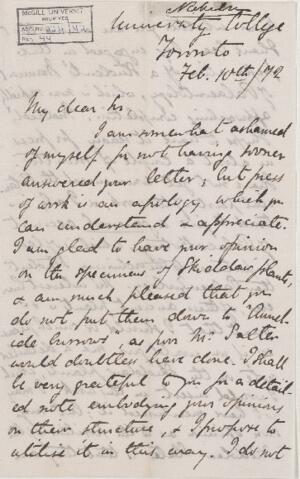 McGILL UNIVERSITY
ARCHIVES
ACC. NO.
REF. 44
University College
Toronto.
Feb. 10th/72
My dear Sir,
I am somewhat ashamed
of myself for not having sooner
answered your letter; but press
of work is an apology which you
can understand & appreciate.
I am glad to have your opinion
on the specimens of Skiddaw plants,
& am much pleased that you
do not put them down to "Anne-
lide burrows", as poor Mr. Salter
would doubtless have done. I shall
be very grateful to you for a detail-
ed note embodying your opinions
on their structure, & I propose to
utilise it in this way. I do not